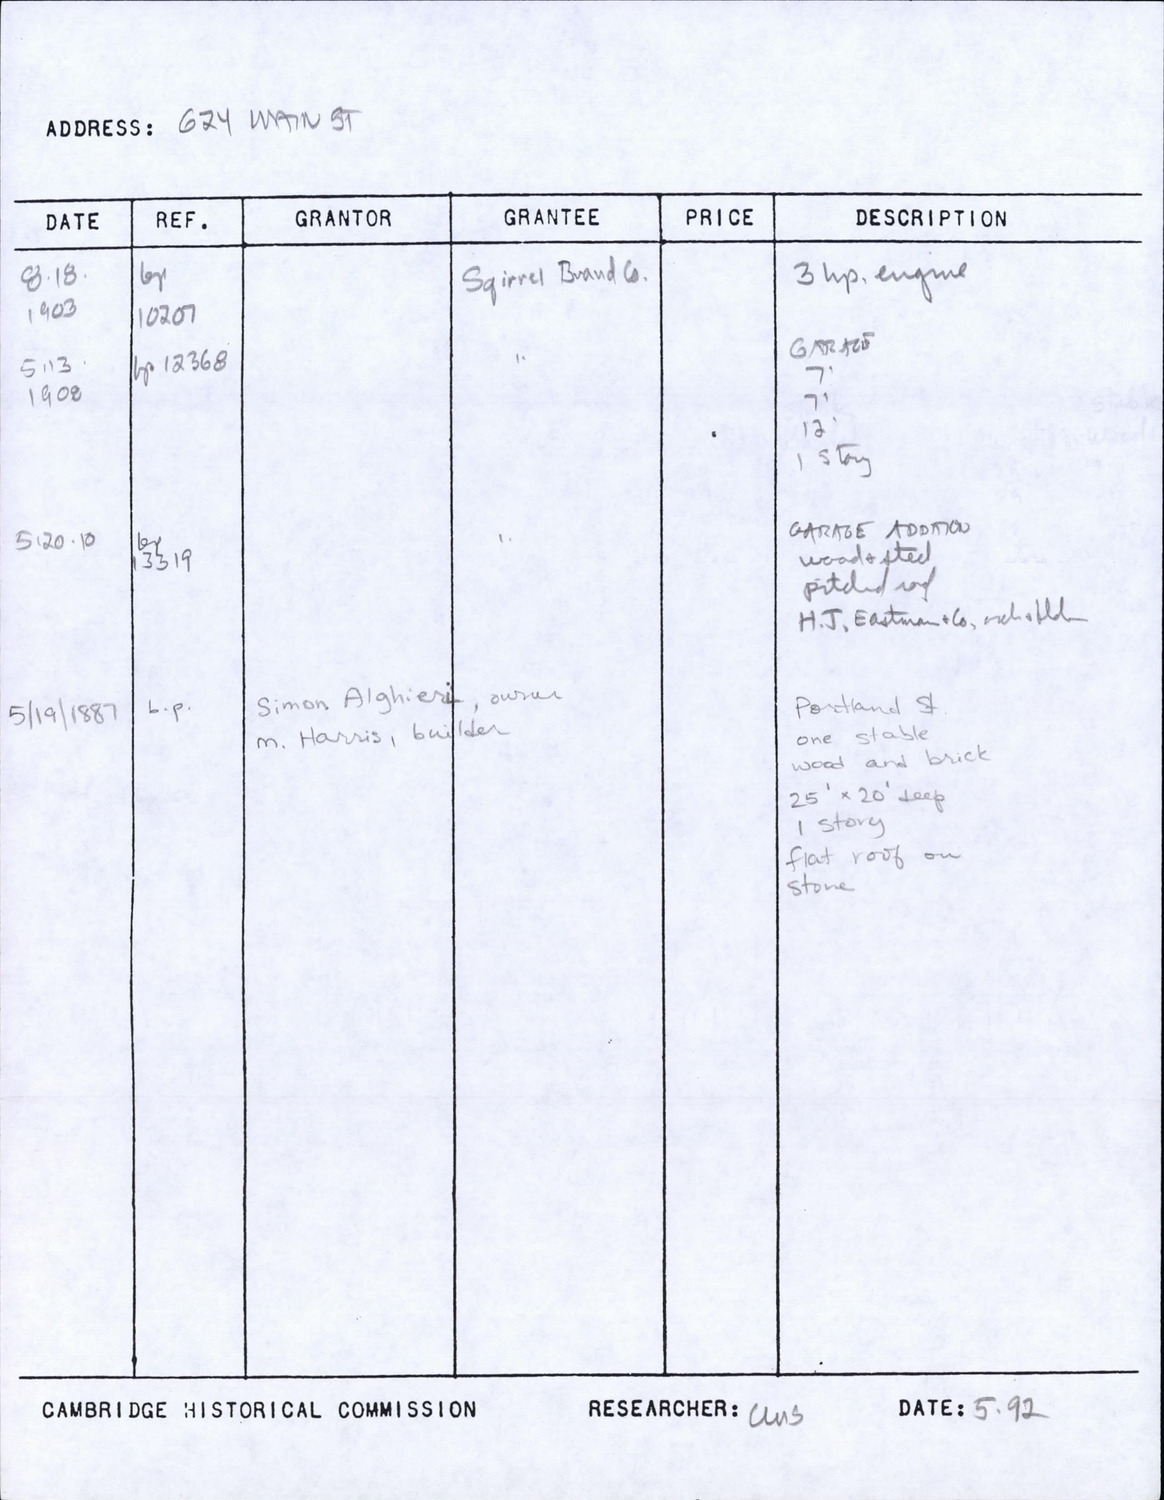 ADDRESS: 624 MAIN ST
DATE REF. GRANTOR GRANTEE PRICE DESCRIPTION
8.18. bp Squirrel Brand Co. 3 hp. engine
1903 10207
5.13. bp 12368 " GARAGE
1908 7'
7'
12'
1 story
5.20.10 bp " GARAGE ADDITION
13319 wood + steel
pitched roof
H.J. Eastman + Co,
5/19/1887 b.p. Simon Alghieri, owner Portland St.
m. Harris, builder one stable
wood and brick
25' x 20' deep
1 story
flat roof on
stone
CAMBRIDGE HISTORICAL COMMISSION RESEARCHER: DATE: 5.92